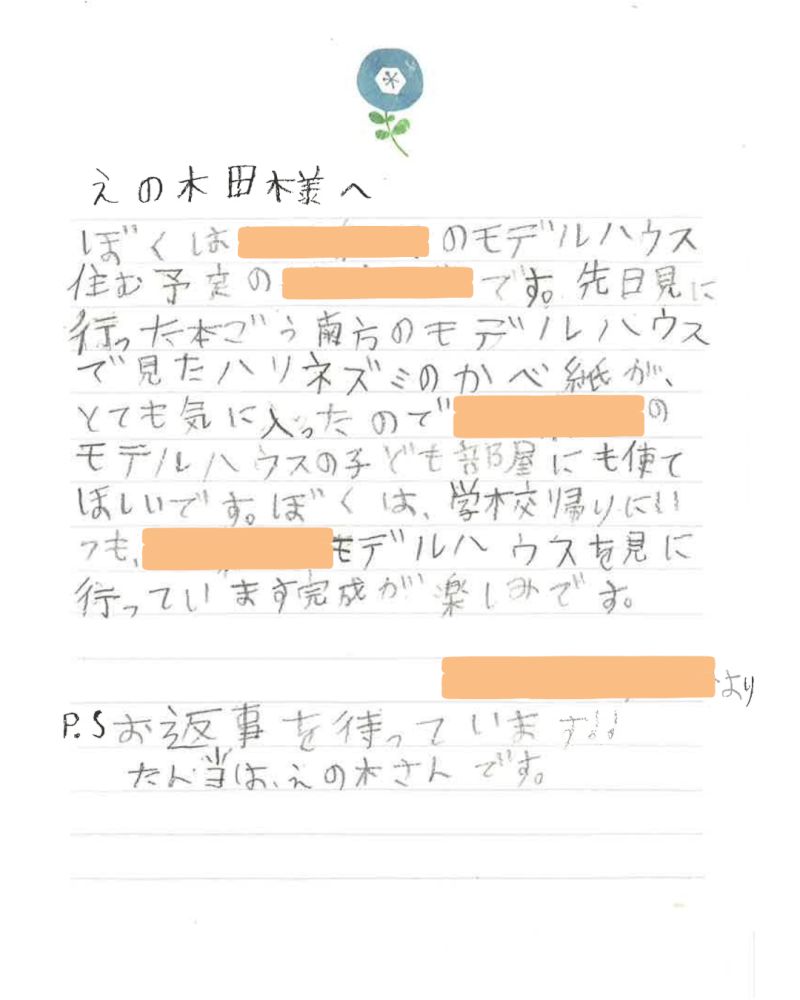 えの木田様へ
ぼくは のモデルハウス
住む予定の です。先日見に
行った本ごう南方のモデルハウス
で見たハリネズミのかべ紙が、
とても気に入ったので の
モデルハウスの子ども部屋にも使て
ほしいです。ぼくは、学校帰りにい
つも、 モデルハウスを見に
行っています完成が楽しみです。
より
P.Sお返事を待っています!!
たん当は、えの木さんです。